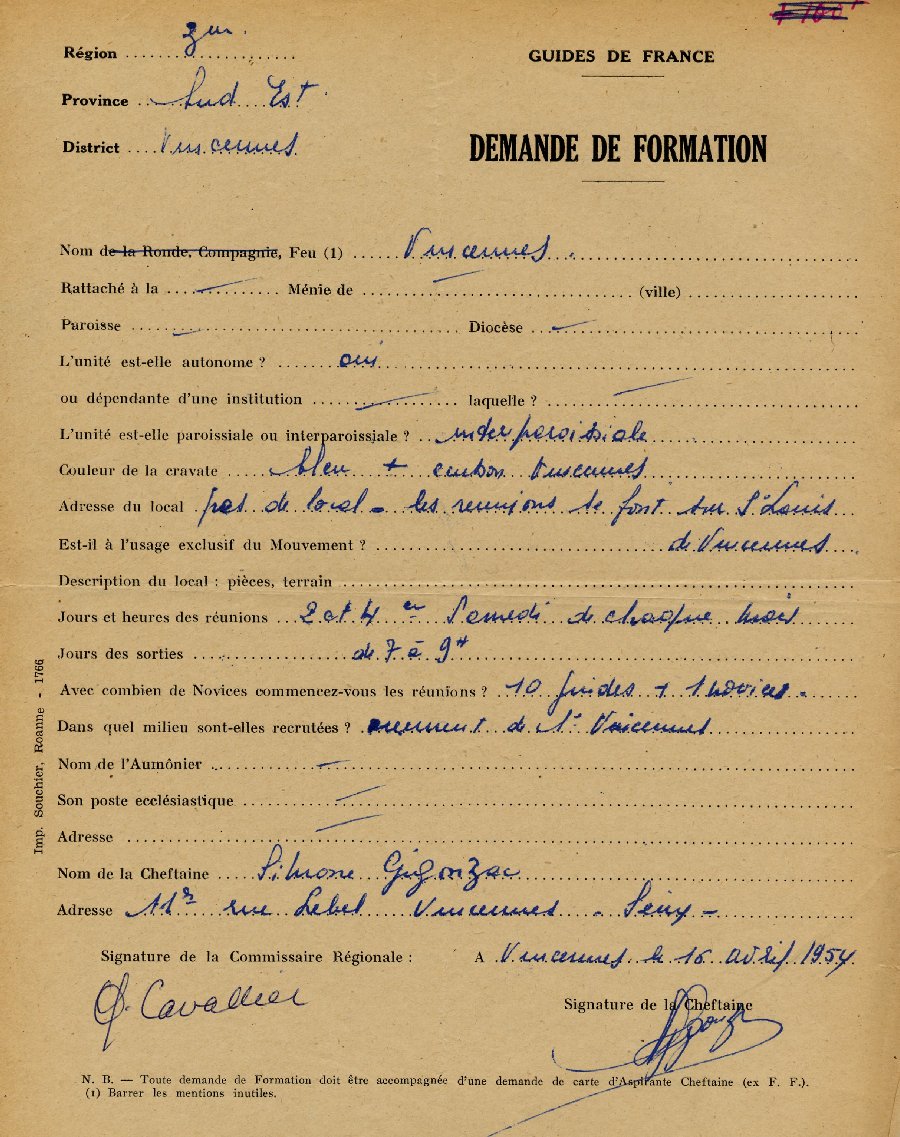 Région
GUIDES DE FRANCE
Province Sud Est
District Vincennes
DEMANDE DE FORMATION
Nom de la Ronde, Compagnie, Feu (1) Vincennes.
Rattaché à la — Ménie de — (ville)
Paroisse — Diocèse —
L'unité est-elle autonome ? oui
ou dépendante d'une institution — laquelle ? —
L'unité est-elle paroissiale ou interparoissiale ? interparoissiale
Couleur de la cravate bleu + écusson Vincennes
Adresse du local pas de local - les réunions se font sur St Louis
Est-il à l'usage exclusif du Mouvement ? de Vincennes
Description du local : pièces, terrain
Jours et heures des réunions 2 et 4 Samedi de chaque mois
Jours des sorties de 7 à 9H
Avec combien de Novices commencez-vous les réunions ? 10 guides + 1 novice.
Dans quel milieu sont-elles recrutées ? de Vincennes
Nom de l'Aumônier —
Son poste ecclésiastique —
Adresse —
Nom de la Cheftaine Simone Gigonzac
Adresse rue Lebel Vincennes -
Signature de la Commissaire Régionale :
A Vincennes le 16 avril 1954
Cavallier
Signature de la Cheftaine
N. B. — Toute demande de Formation doit être accompagnée d'une demande de carte d'Aspirante Cheftaine (ex F. F.).
(1) Barrer les mentions inutiles.
Imp. Souchier, Roanne - 1766